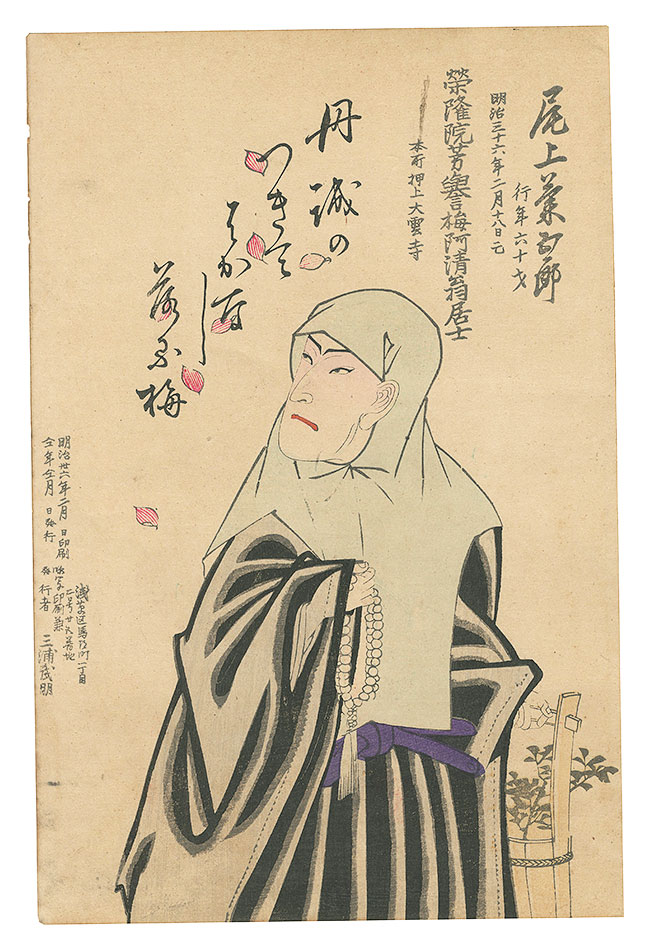 尾上菊五郎
行年六十才
明治三十六年二月十八日元
榮隆院芳譽梅阿清翁居士
本所押上大雲寺
丹誠の
つきて
はかな
し
落る梅
明治卅六年二月 日印刷
仝年仝月 日發行
浅草区馬道町一丁目
印刷兼
發行者 三浦茂明